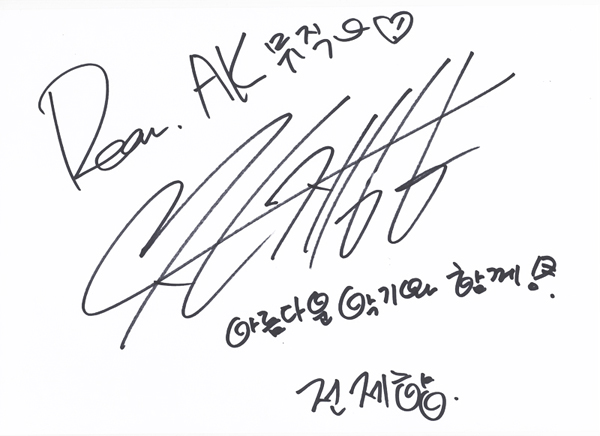 Dear. AK 뮤직
아름다운 악기와 함께!
전제향.